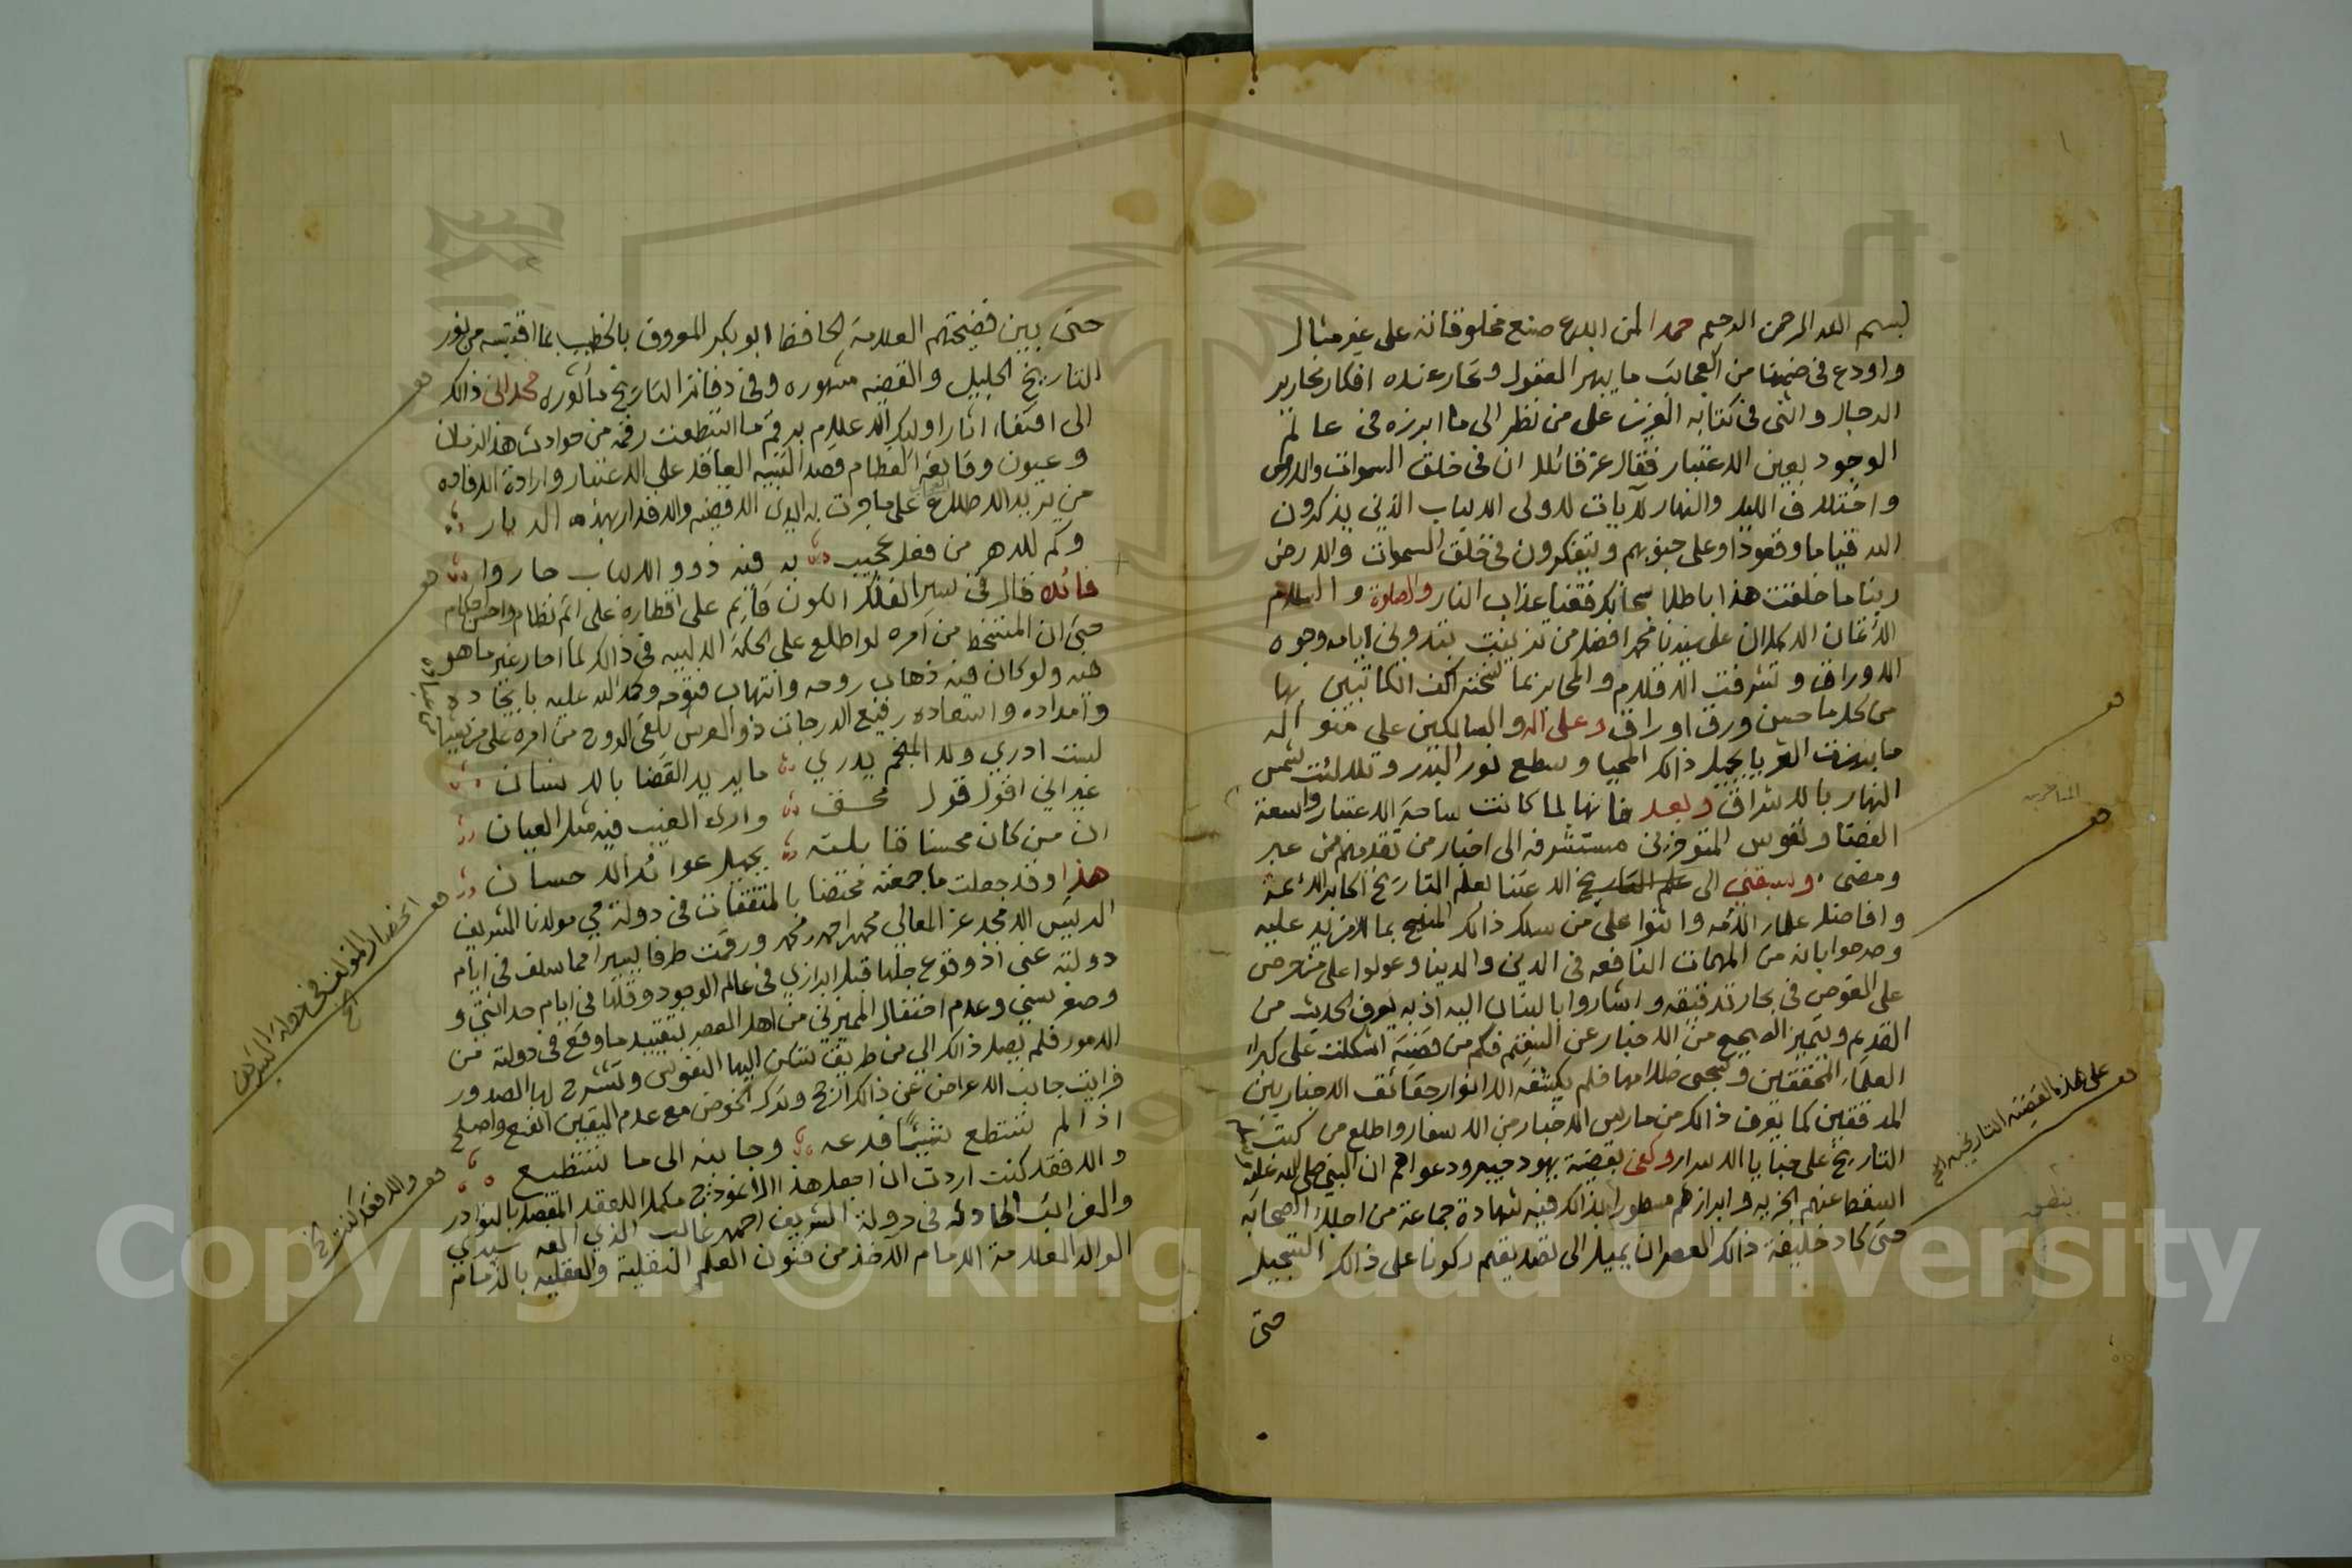 بسم الله الرحمن الرحيم حمدا لمن ابدع صنع مخلوقاته على غير مثال
واودع في ضمنها من العجائب ما يبهر العقول وتحار عنده افكار نحارير
الرجال واثنى في كتابه العزيز على من نظر الى ما ابرزه في عالم
الوجود بعين الاعتبار فقال عز قائلا ان في خلق السموات والارض
واختلاف الليل والنهار لآيات لاولى الالباب الذين يذكرون
الله قياما وقعودا وعلى جنوبهم ويتفكرون في خلق السموات والارض
ربنا ما خلقت هذا باطلا سبحانك فقنا عذاب النار والصلاة والسلام
الاتمان الاكملان على سيدنا محمد افضل من تزينت بتدوين ايامه وجوه
الاوراق وتشرفت الاقلام والمحابر بما نسخته اكف الكاتبين بها
من كل ما حسن ورق اوراق وعلى اله والسالكين على منواله
ما بزغت الثريا بجيد ذالك المحيا وسطع نور البدر وتلالئت شمس
النهار بالاشراق وبعد فانها لما كانت ساحة الاعتبار واسعة
الفضا ونفوس المتوفرين مستشرفه الى اخبار من تقدمهم ممن عبر
ومضى وسبقني الى الاعتنا بعلم التاريخ اكابر الائمة
وافاضل علماء الامه واثنوا على من سلك ذالك المنهج بما لامزيد عليه
وصرحوا بانه من المهمات النافعه في الدين والدنيا وعولوا على من حرص
على الغوص في بحار تدقيقه واشاروا بالبنان اليه اذ به يعرف الحديث من
القديم وتميز الصحيح من الاخبار عن السقيم فكم من قضية اشكلت على كبراء
العلماء المحققين وسجى ظلامها فلم يكشفه الا انوار حقائق الاخباريين
المدققين كما يعرف ذالك من مارس الاخبار من الاسفار واطلع من كتب
التاريخ على خبايا الاسرار وكفى بقضية يهود خيبر ودعواهم ان النبي صلى الله عليه
اسقط عنهم الجزيه وابرازهم مسطورا بذالك فيه شهادة جماعة من اجلاء الصحابه
حتى كاد خليفة ذالك العصر ان يميل الى تصديقهم ركونا على ذالك التسجيل
حتى
على هذه القضية التاريخيه الخ
حتى بين فضيحتهم العلامة الحافظ ابو بكر المعروف بالخطيب بما اقتبسه من نور
التاريخ الجليل والقضيه مشهوره وفي دفاتر التاريخ ماثوره فحداني ذالك
الى اقتفاء اثار اوليك الاعلام برقم ما استطعت رقمه من حوادث هذا الزمان
وعيون وقايعه العظام قصد التنبيه الغافل على الاعتبار وارادة الافاده
من يريد الاطلاع على ما جرت به ايدي الاقضيه والاقدار بهذه الديار
وكم للدهر من فعل عجيب به فيه ذوو الالباب حاروا
فائده قال في سير الفلك الكون قائم على اقطاره على اتم نظام واحسن احكام
حتى ان المتسخط من امره لو اطلع على الحكمة الالهيه في ذالك لما اختار غير ما هو
فيه ولو كان فيه ذهاب روحه وانتهاب فتوحه وحمد الله عليه بايجاده
وامداده واسعاده رفيع الدرجات ذو العرش يلقى الروح من امره على من يشاء
من عباده
لست ادري ولا المنجم يدري ما يريد القضا بالانسان
غير اني اقول قول محق وارى الغيب فيه مثل العيان
ان من كان محسنا قابلته بجميل عوائد الاحسان
هذا وقد جعلت ما جمعته مختصا بالمتفقات في دولة محيي مولانا الشريف
الرئيس الامجد عز المعالي محمد احمد محمد ورقمت طرفا يسيرا مما سلف في ايام
دولته عني اذ وقوع جلها قبل ابرازي في عالم الوجود وقلها في ايام حداثتي و
وصغر سني وعدم احتفال المميزين من اهل العصر بتقييد ما وقع في دولته من
الامور فلم يصل ذالك الي من طريق تسكن اليها النفوس وتنشرح لها الصدور
فرايت جانب الاعراض عن ذالك ارجح وترك الخوض مع عدم اليقين انفع واصلح
اذا لم تستطع شيئا فدعه وجاوزه الى ما تستطيع
والا فقد كنت اردت ان اجعل هذا الانموذج مكملا للعقد المفصل بالنوادر
والغرائب الحادثه في دولة الشريف احمد غالب الذي الفه سيدي
الوالد العلامة الامام الاخذ من فنون العلم النقلية والعقليه بالزمام
والا فقد كنت الخ